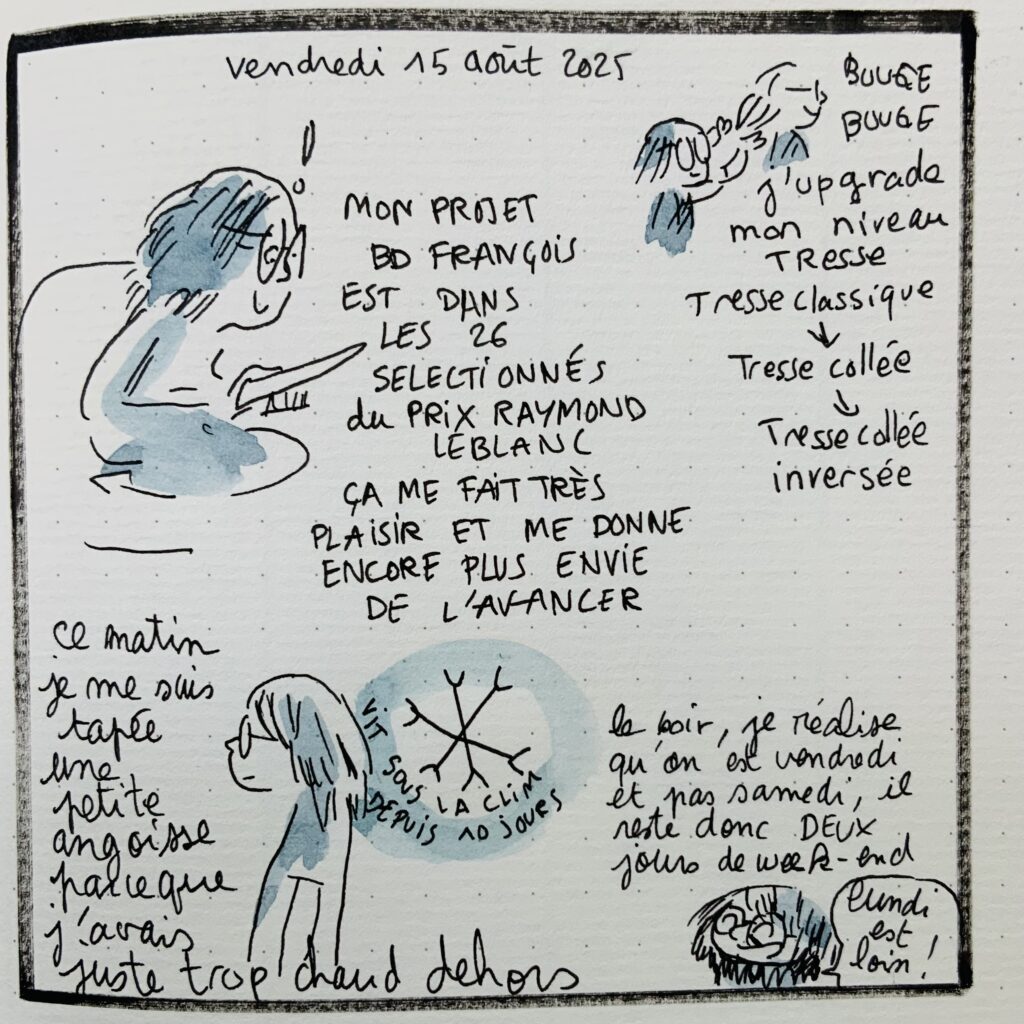 vendredi 15 août 2025
!
MON PROJET
BD FRANÇOIS
EST DANS
LES 26
SELECTIONNÉS
du PRIX RAYMOND
LEBLANC
ÇA ME FAIT TRÈS
PLAISIR ET ME DONNE
ENCORE PLUS ENVIE
DE L'AVANCER
BOUGE
BOUGE
j'upgrade
mon niveau
TRESSE
Tresse classique
↓
Tresse collée
↓
Tresse collée
inversée
ce matin
je me suis
tapée
une
petite
angoisse
parceque
j'avais
juste trop chaud dehors
VIT
SOUS LA CLIM
DEPUIS 10 JOURS
le soir, je réalise
qu'on est vendredi
et pas samedi, il
reste donc DEUX
jours de week-end
lundi
est
loin !